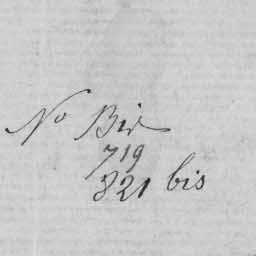 No Bis
719
821 bis